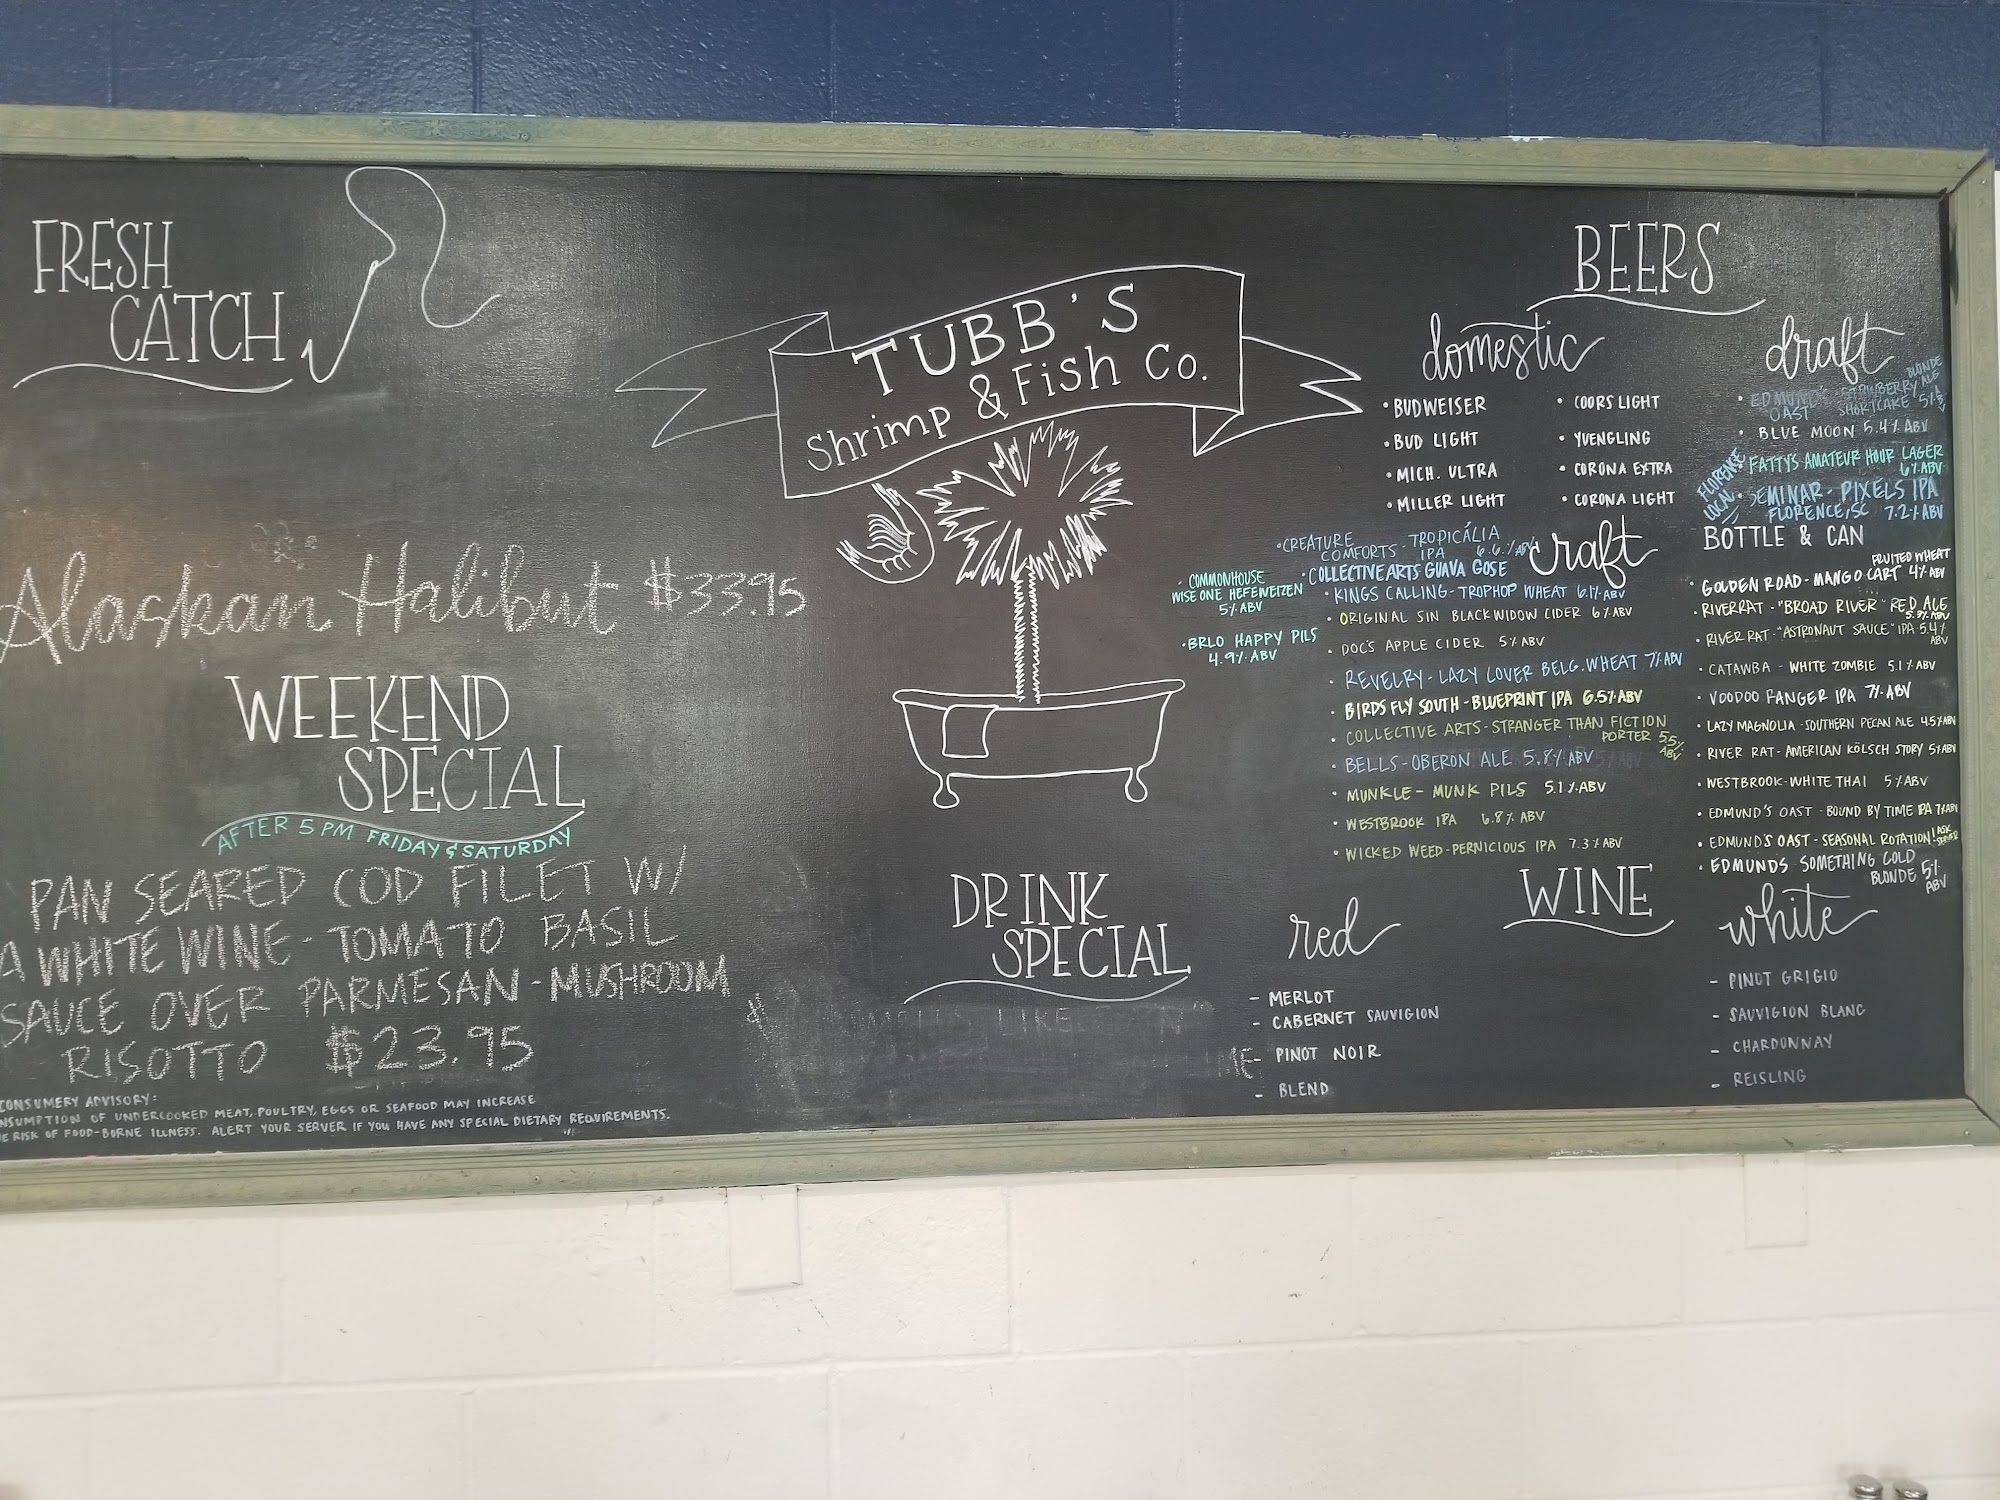 FRESH
CATCH
Alaskan Halibut $33.95
WEEKEND
SPECIAL
AFTER 5 PM FRIDAY & SATURDAY
PAN SEARED COD FILET W/
A WHITE WINE-TOMATO BASIL
SAUCE OVER PARMESAN-MUSHROOM
RISOTTO $23.95
CONSUMERY ADVISORY:
NSUMPTION OF UNDERCOOKED MEAT, POULTRY, EGGS OR SEAFOOD MAY INCREASE
E RISK OF FOOD-BORNE ILLNESS. ALERT YOUR SERVER IF YOU HAVE ANY SPECIAL DIETARY REQUIREMENTS.
TUBB'S
Shrimp & Fish Co.
DRINK
SPECIAL
BEERS
domestic
• BUDWEISER
• BUD LIGHT
• MICH. ULTRA
• MILLER LIGHT
• COORS LIGHT
• YUENGLING
• CORONA EXTRA
• CORONA LIGHT
craft
• CREATURE
COMFORTS - TROPICÁLIA
IPA 6.6% ABV
• COLLECTIVE ARTS GUAVA GOSE
• KINGS CALLING - TROPHOP WHEAT 6.1% ABV
• ORIGINAL SIN BLACKWIDOW CIDER 6% ABV
• DOC'S APPLE CIDER 5% ABV
• REVELRY - LAZY LOVER BELG. WHEAT 7% ABV
• BIRDS FLY SOUTH - BLUEPRINT IPA 6.5% ABV
• COLLECTIVE ARTS - STRANGER THAN FICTION
PORTER 5.5%
ABV
• BELLS - OBERON ALE 5.8% ABV
• MUNKLE - MUNK PILS 5.1% ABV
• WESTBROOK IPA 6.8% ABV
• WICKED WEED - PERNICIOUS IPA 7.3% ABV
• COMMONHOUSE
WISE ONE HEFEWEIZEN
5% ABV
• BRLO HAPPY PILS
4.9% ABV
draft
• EDMUND'S OAST
STRAWBERRY
SHORTCAKE
BLONDE
ALE
5% ABV
• BLUE MOON 5.4% ABV
• FATTYS AMATEUR HOUR LAGER
6% ABV
FLORENCE
LOCAL
• SEMINAR - PIXELS IPA
FLORENCE, SC 7.2% ABV
BOTTLE & CAN
FRUITED WHEAT
• GOLDEN ROAD - MANGO CART 4% ABV
• RIVER RAT - "BROAD RIVER" RED ALE
ABV
• RIVER RAT - "ASTRONAUT SAUCE" IPA 5.4%
ABV
• CATAWBA - WHITE ZOMBIE 5.1% ABV
• VOODOO RANGER IPA 7% ABV
• LAZY MAGNOLIA - SOUTHERN PECAN ALE 4.5% ABV
• RIVER RAT - AMERICAN KÖLSCH STORY 5% ABV
• WESTBROOK - WHITE THAI 5% ABV
• EDMUND'S OAST - BOUND BY TIME IPA 7% ABV
• EDMUND'S OAST - SEASONAL ROTATION! ASK
SERVER
• EDMUNDS SOMETHING COLD
BLONDE 5%
ABV
WINE
red
- MERLOT
- CABERNET SAUVIGION
- PINOT NOIR
- BLEND
white
- PINOT GRIGIO
- SAUVIGION BLANC
- CHARDONNAY
- REISLING